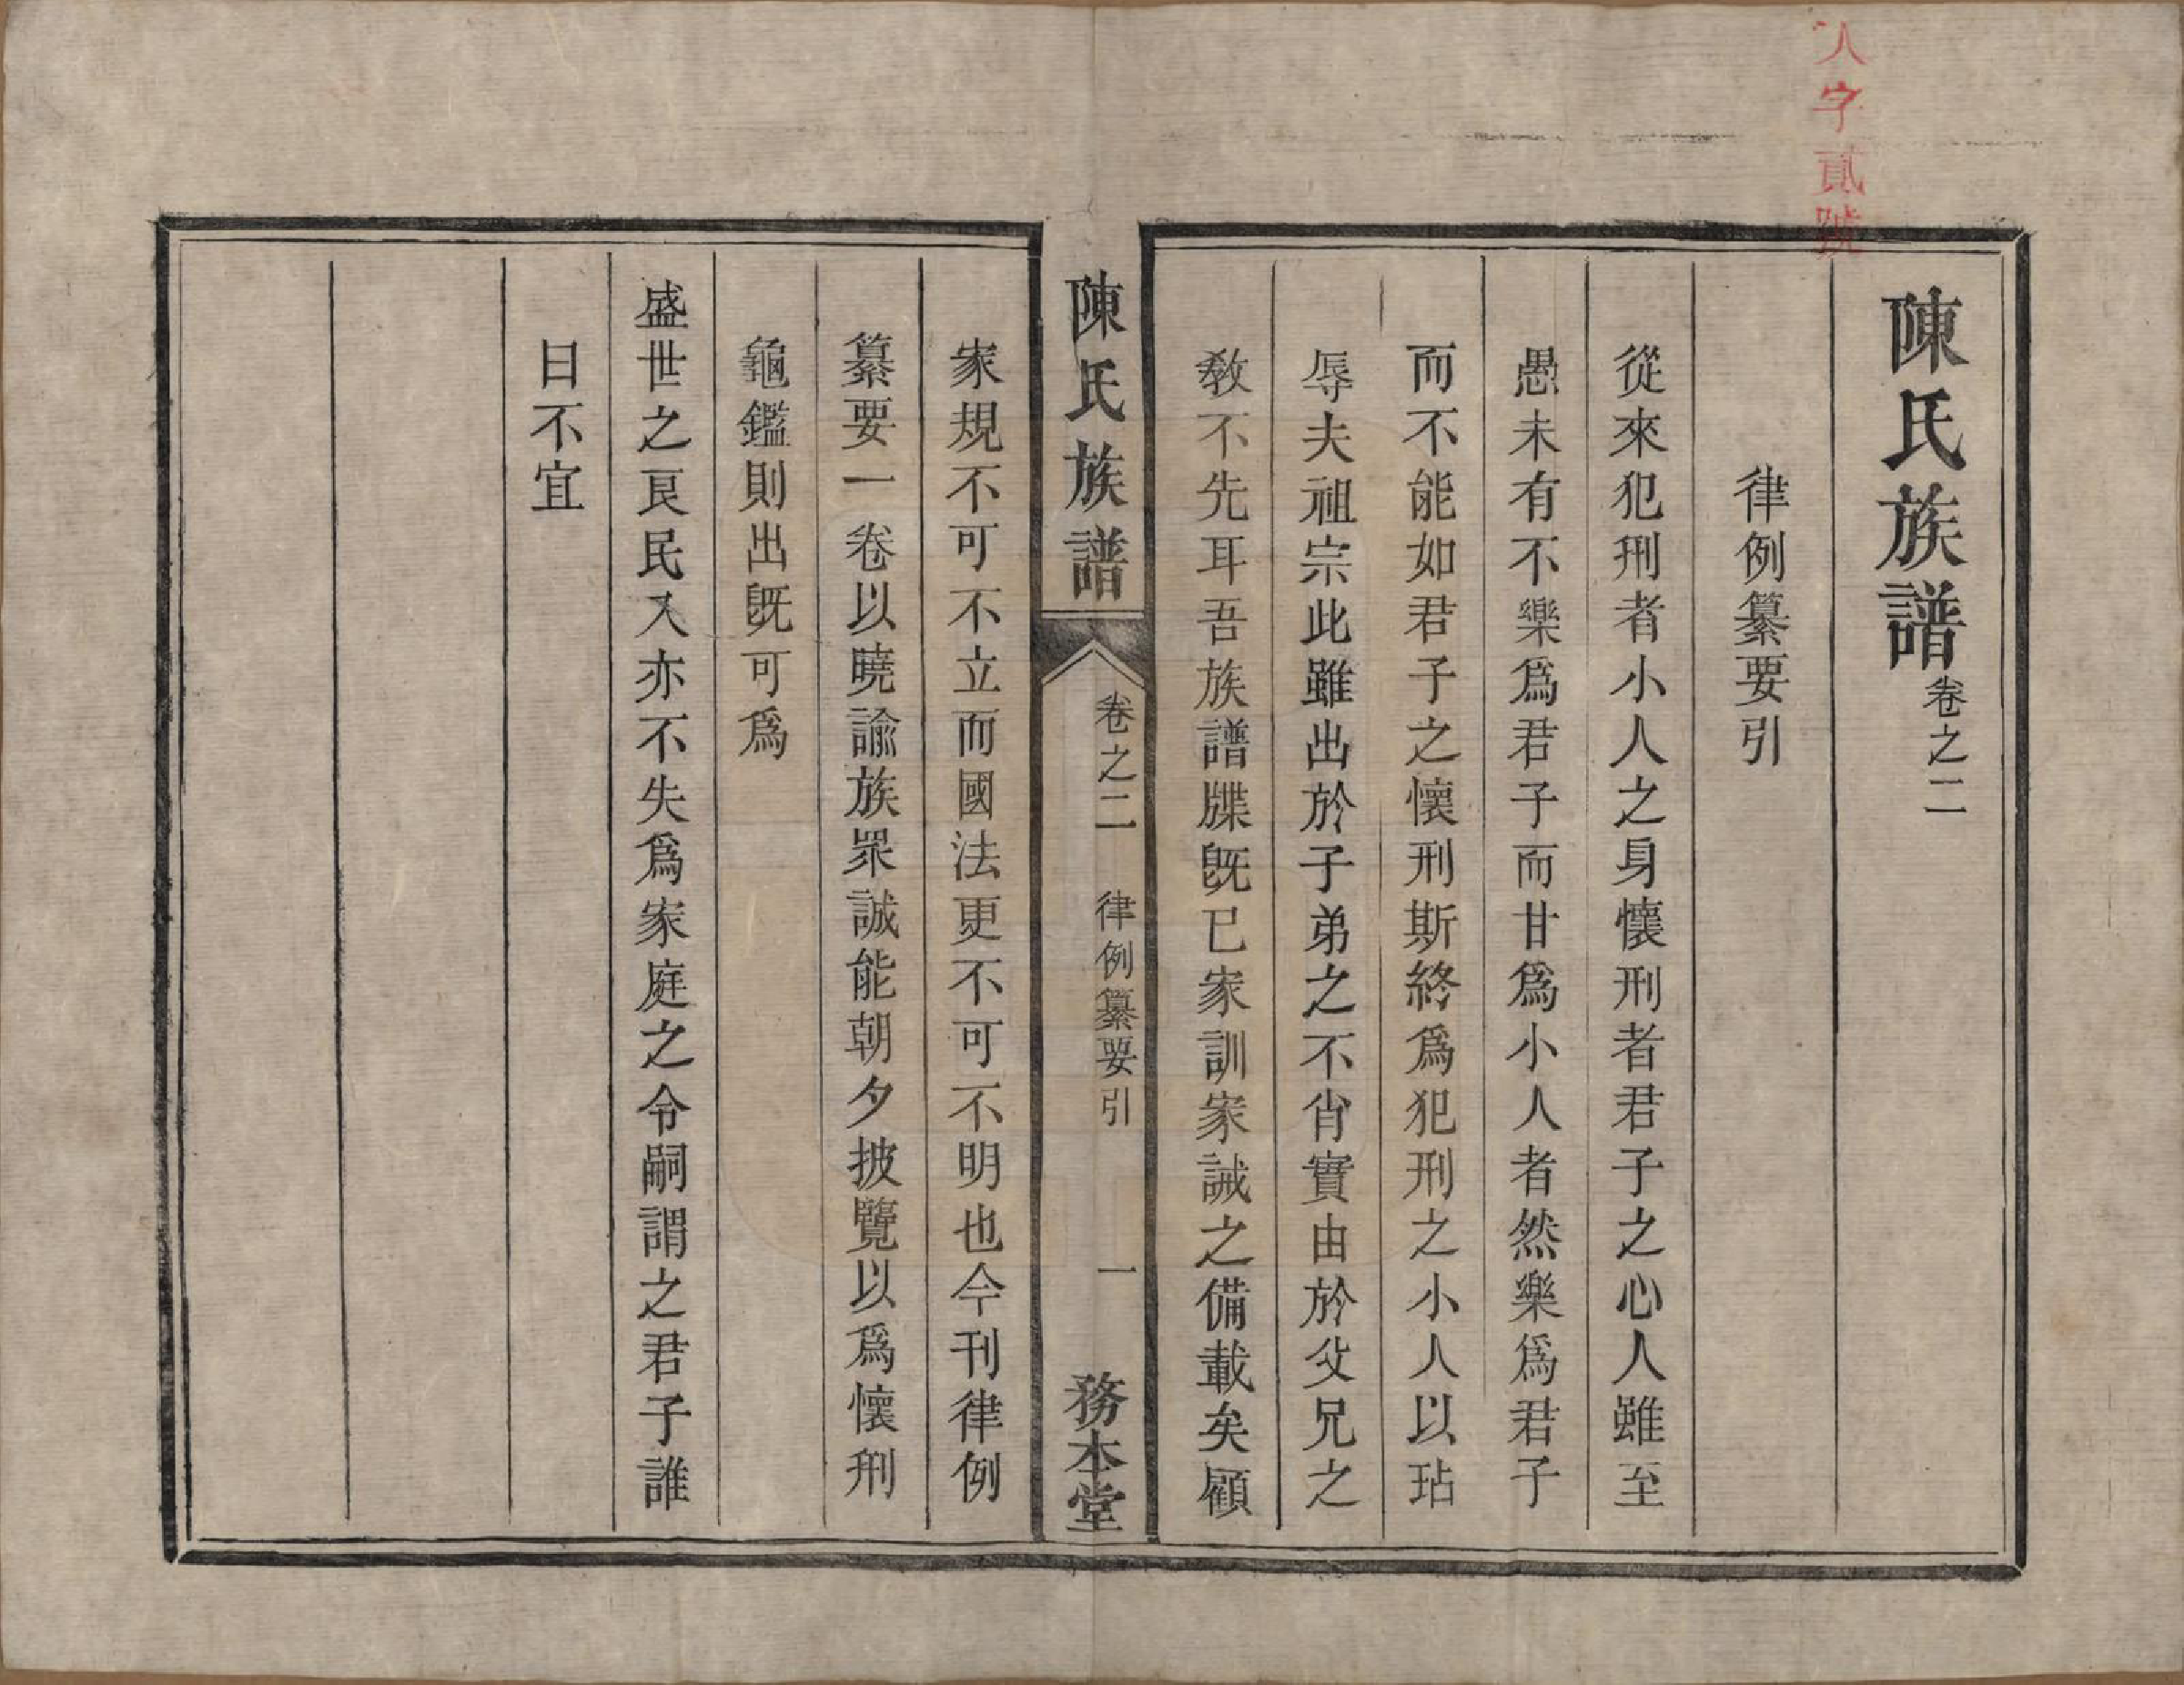 人字貳號
陳氏族譜卷之二
律例纂要引
從來犯刑者小人之身懷刑者君子之心人雖至
愚未有不樂爲君子而甘爲小人者然樂爲君子
而不能如君子之懷刑斯終爲犯刑之小人以玷
辱夫祖宗此雖出於子弟之不肖實由於父兄之
教不先耳吾族譜牒旣已家訓家誡之備載矣顧
陳氏族譜 卷之二 律例纂要引 一 務本堂
家規不可不立而國法更不可不明也今刊律例
纂要一卷以曉諭族眾誠能朝夕披覽以爲懷刑
龜鑑則出旣可爲
盛世之良民入亦不失爲家庭之令嗣謂之君子誰
曰不宜